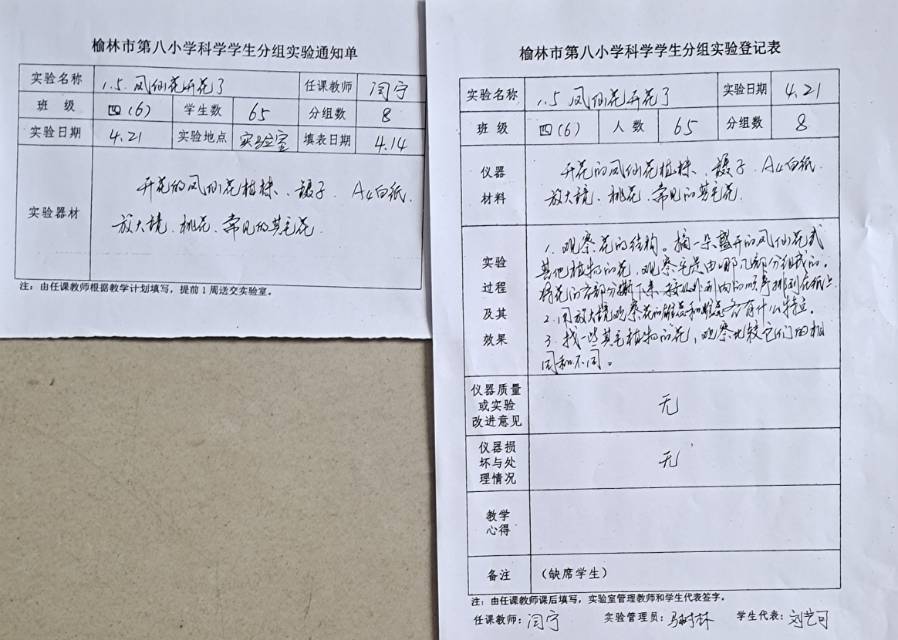 榆林市第八小学科学学生分组实验通知单
实验名称 1.5 凤仙花开花了 任课教师 闫宁
班 级 四(6) 学生数 65 分组数 8
实验日期 4.21 实验地点 实验室 填表日期 4.14
实验器材
开花的凤仙花植株、镊子、A4白纸、
放大镜、桃花、常见的其它花
注：由任课教师根据教学计划填写，提前1周送交实验室。
榆林市第八小学科学学生分组实验登记表
实验名称 1.5 凤仙花开花了 实验日期 4.21
班 级 四(6) 人 数 65 分组数 8
仪器材料
开花的凤仙花植株、镊子、A4白纸、
放大镜、桃花、常见的其它花
实验过程及其效果
1、观察花的结构。摘一朵盛开的凤仙花或
其他植物的花,观察它是由哪几部分组成的,
将花的各部分撕下来,按从外到内的顺序排列在纸上
2、用放大镜观察花的雄蕊和雌蕊各有什么特点。
3、找一些其它植物的花,观察比较它们的相
同和不同。
仪器质量或实验改进意见 无
仪器损坏与处理情况 无
教学心得
备注 （缺席学生）
注：由任课教师课后填写，实验室管理教师和学生代表签字。
任课教师：闫宁 实验管理员： 学生代表：刘艺可